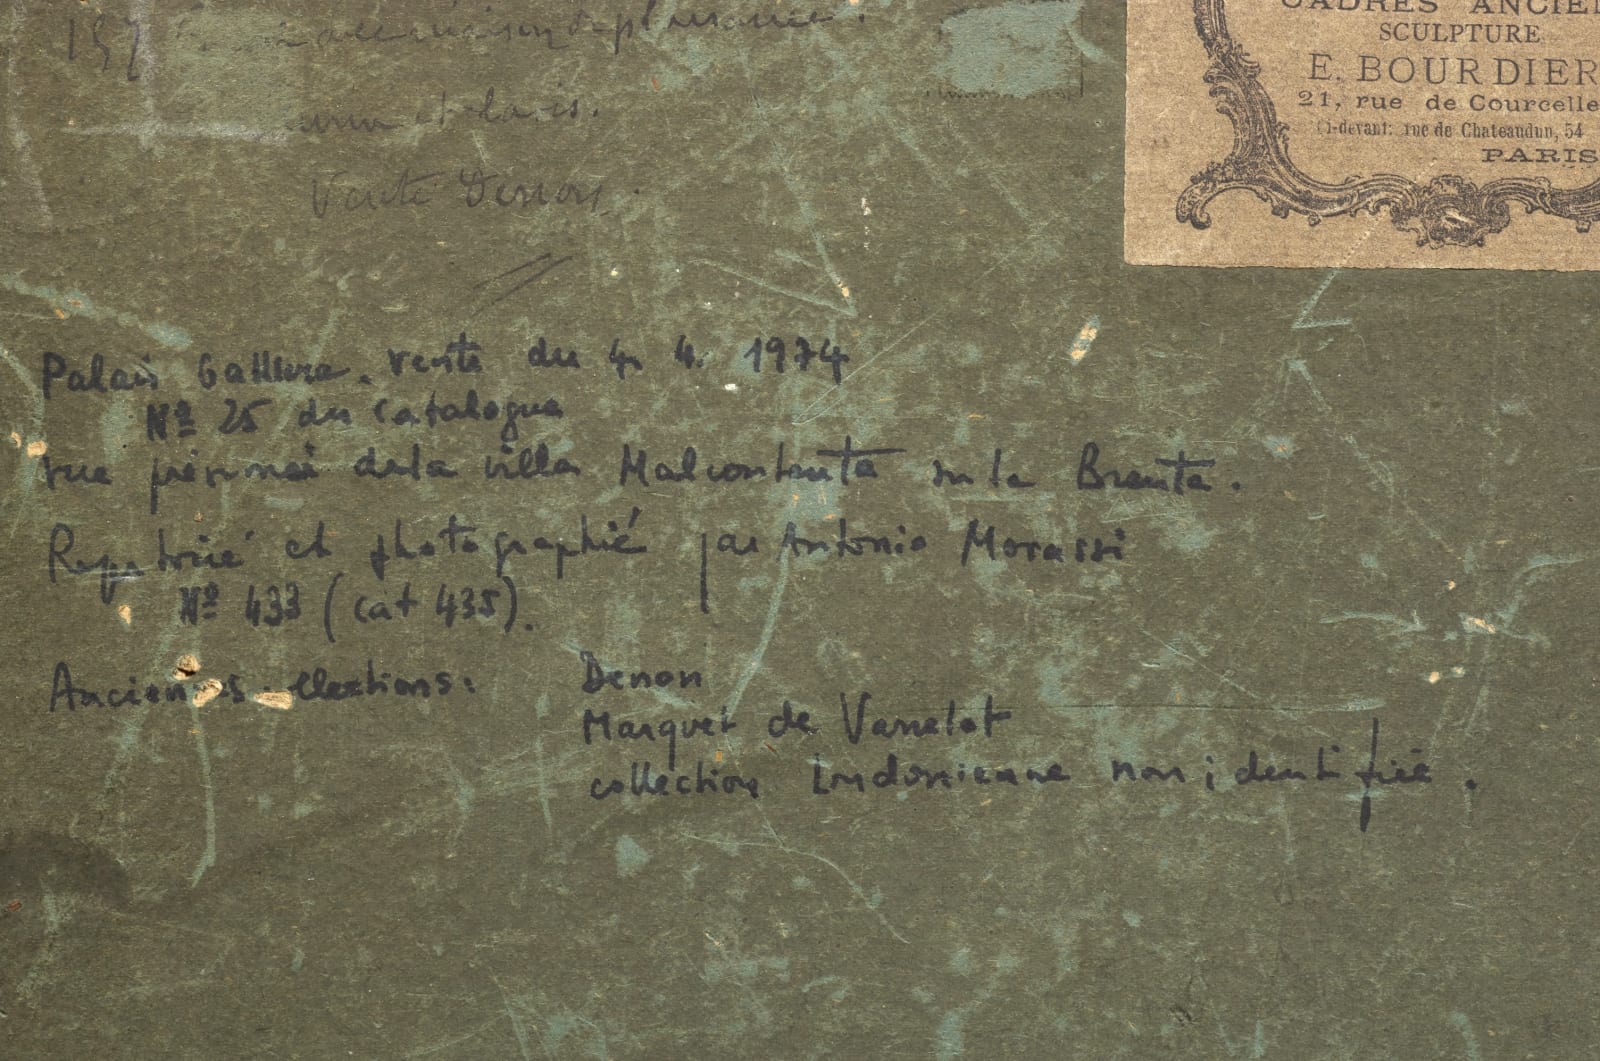 CADRES ANCIEN
SCULPTURE
E. BOURDIER
21, rue de Courcelle
Ci-devant: rue de Chateaudun, 54
PARIS
157
et lavis.
Vente Denon.
Palais Galliera. Vente du 4. 4. 1974
Nº 25 du Catalogue
vue présumée de la villa Malcontenta sur la Brenta.
Répertorié et photographié par Antonio Morassi
Nº 433 (cat 435).
Anciennes collections: Denon
Marquet de Vasselot
collection Londonienne non identifiée.